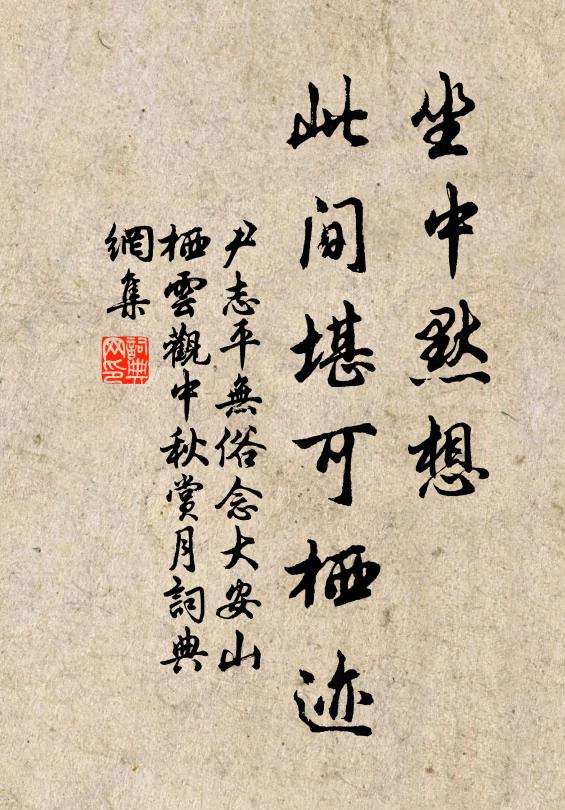 坐中默想
此间堪可栖迹
尹志平無俗念大安山
栖雲觀中秋賞月詞典
網集
詞典
网印